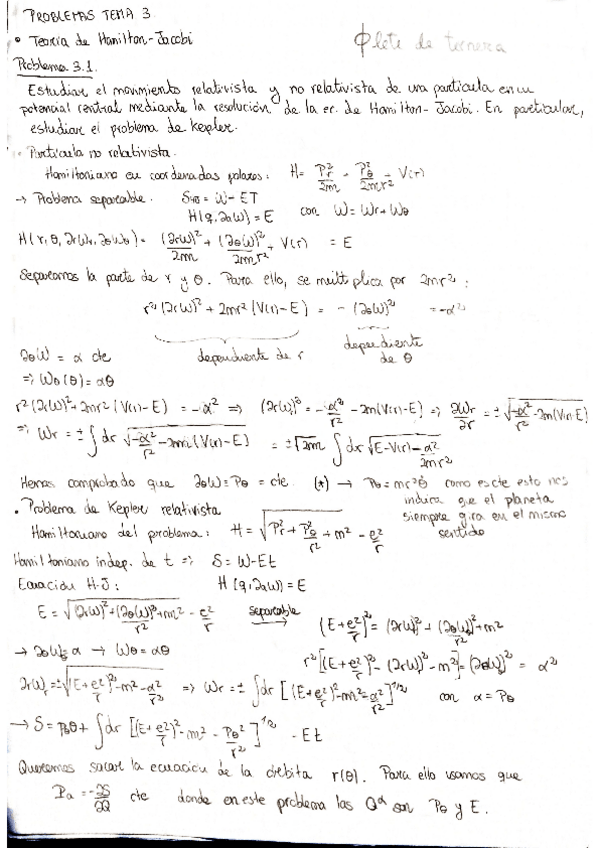 PROBLEMAS TEMA 3
• Teoría de Hamilton-Jacobi
ϕlete de ternera
Problema 3.1.
Estudiar el movimiento relativista y no relativista de una partícula en un
potencial central mediante la resolución de la ec. de Hamilton-Jacobi. En particular,
estudiar el problema de Kepler.
- Partícula no relativista.
Hamiltoniano en coordenadas polares: H = Pr²/2m - Pθ²/2mr² + V(r)
→ Problema separable. S = W - ET
H(q, ∂qW) = E con W = Wr + Wθ
H(r, θ, ∂rWr, ∂θWθ) = (∂rW)²/2m + (∂θW)²/2mr² + V(r) = E
Separamos la parte de r y θ. Para ello, se multiplica por 2mr²:
r²(∂rW)² + 2mr²(V(r)-E) = -(∂θW)² = -α²
dependiente de r
dependiente de θ
∂θW = α cte
⇒ Wθ(θ) = αθ
r²(∂rW)² + 2mr²(V(r)-E) = -α² ⇒ (∂rW)² = -α²/r² - 2m(V(r)-E) ⇒ ∂Wr/∂r = ±√(-α²/r² - 2m(V(r)-E))
⇒ Wr = ±∫dr √(-α²/r² - 2m(V(r)-E)) = ±√2m ∫dr √(E-V(r)-α²/2mr²)
Hemos comprobado que ∂θW = Pθ = cte. (*) → Pθ = mr²θ̇ como es cte esto nos
indica que el planeta
siempre gira en el mismo
sentido
• Problema de Kepler relativista
Hamiltoniano del problema: H = √(Pr² + Pθ²/r² + m²) - e²/r
Hamiltoniano indep. de t ⇒ S = W - Et
Ecuación H-J: H(q, ∂qW) = E
E = √((∂rW)² + (∂θW)²/r² + m²) - e²/r separable → (E + e²/r)² = (∂rW)² + (∂θW)²/r² + m²
→ ∂θWθ = α → Wθ = αθ r²[(E + e²/r)² - (∂rW)² - m²] = (∂θW)² = α²
∂rWr = ±√((E + e²/r)² - m² - α²/r²) ⇒ Wr = ±∫dr [(E + e²/r)² - m² - α²/r²]^1/2 con α = Pθ
→ S = Pθθ + ∫dr [(E + e²/r)² - m² - Pθ²/r²]^1/2 - Et
Queremos sacar la ecuación de la órbita r(θ). Para ello usamos que
Pα = -∂S/∂Q cte donde en este problema las Qα son Pθ y E.